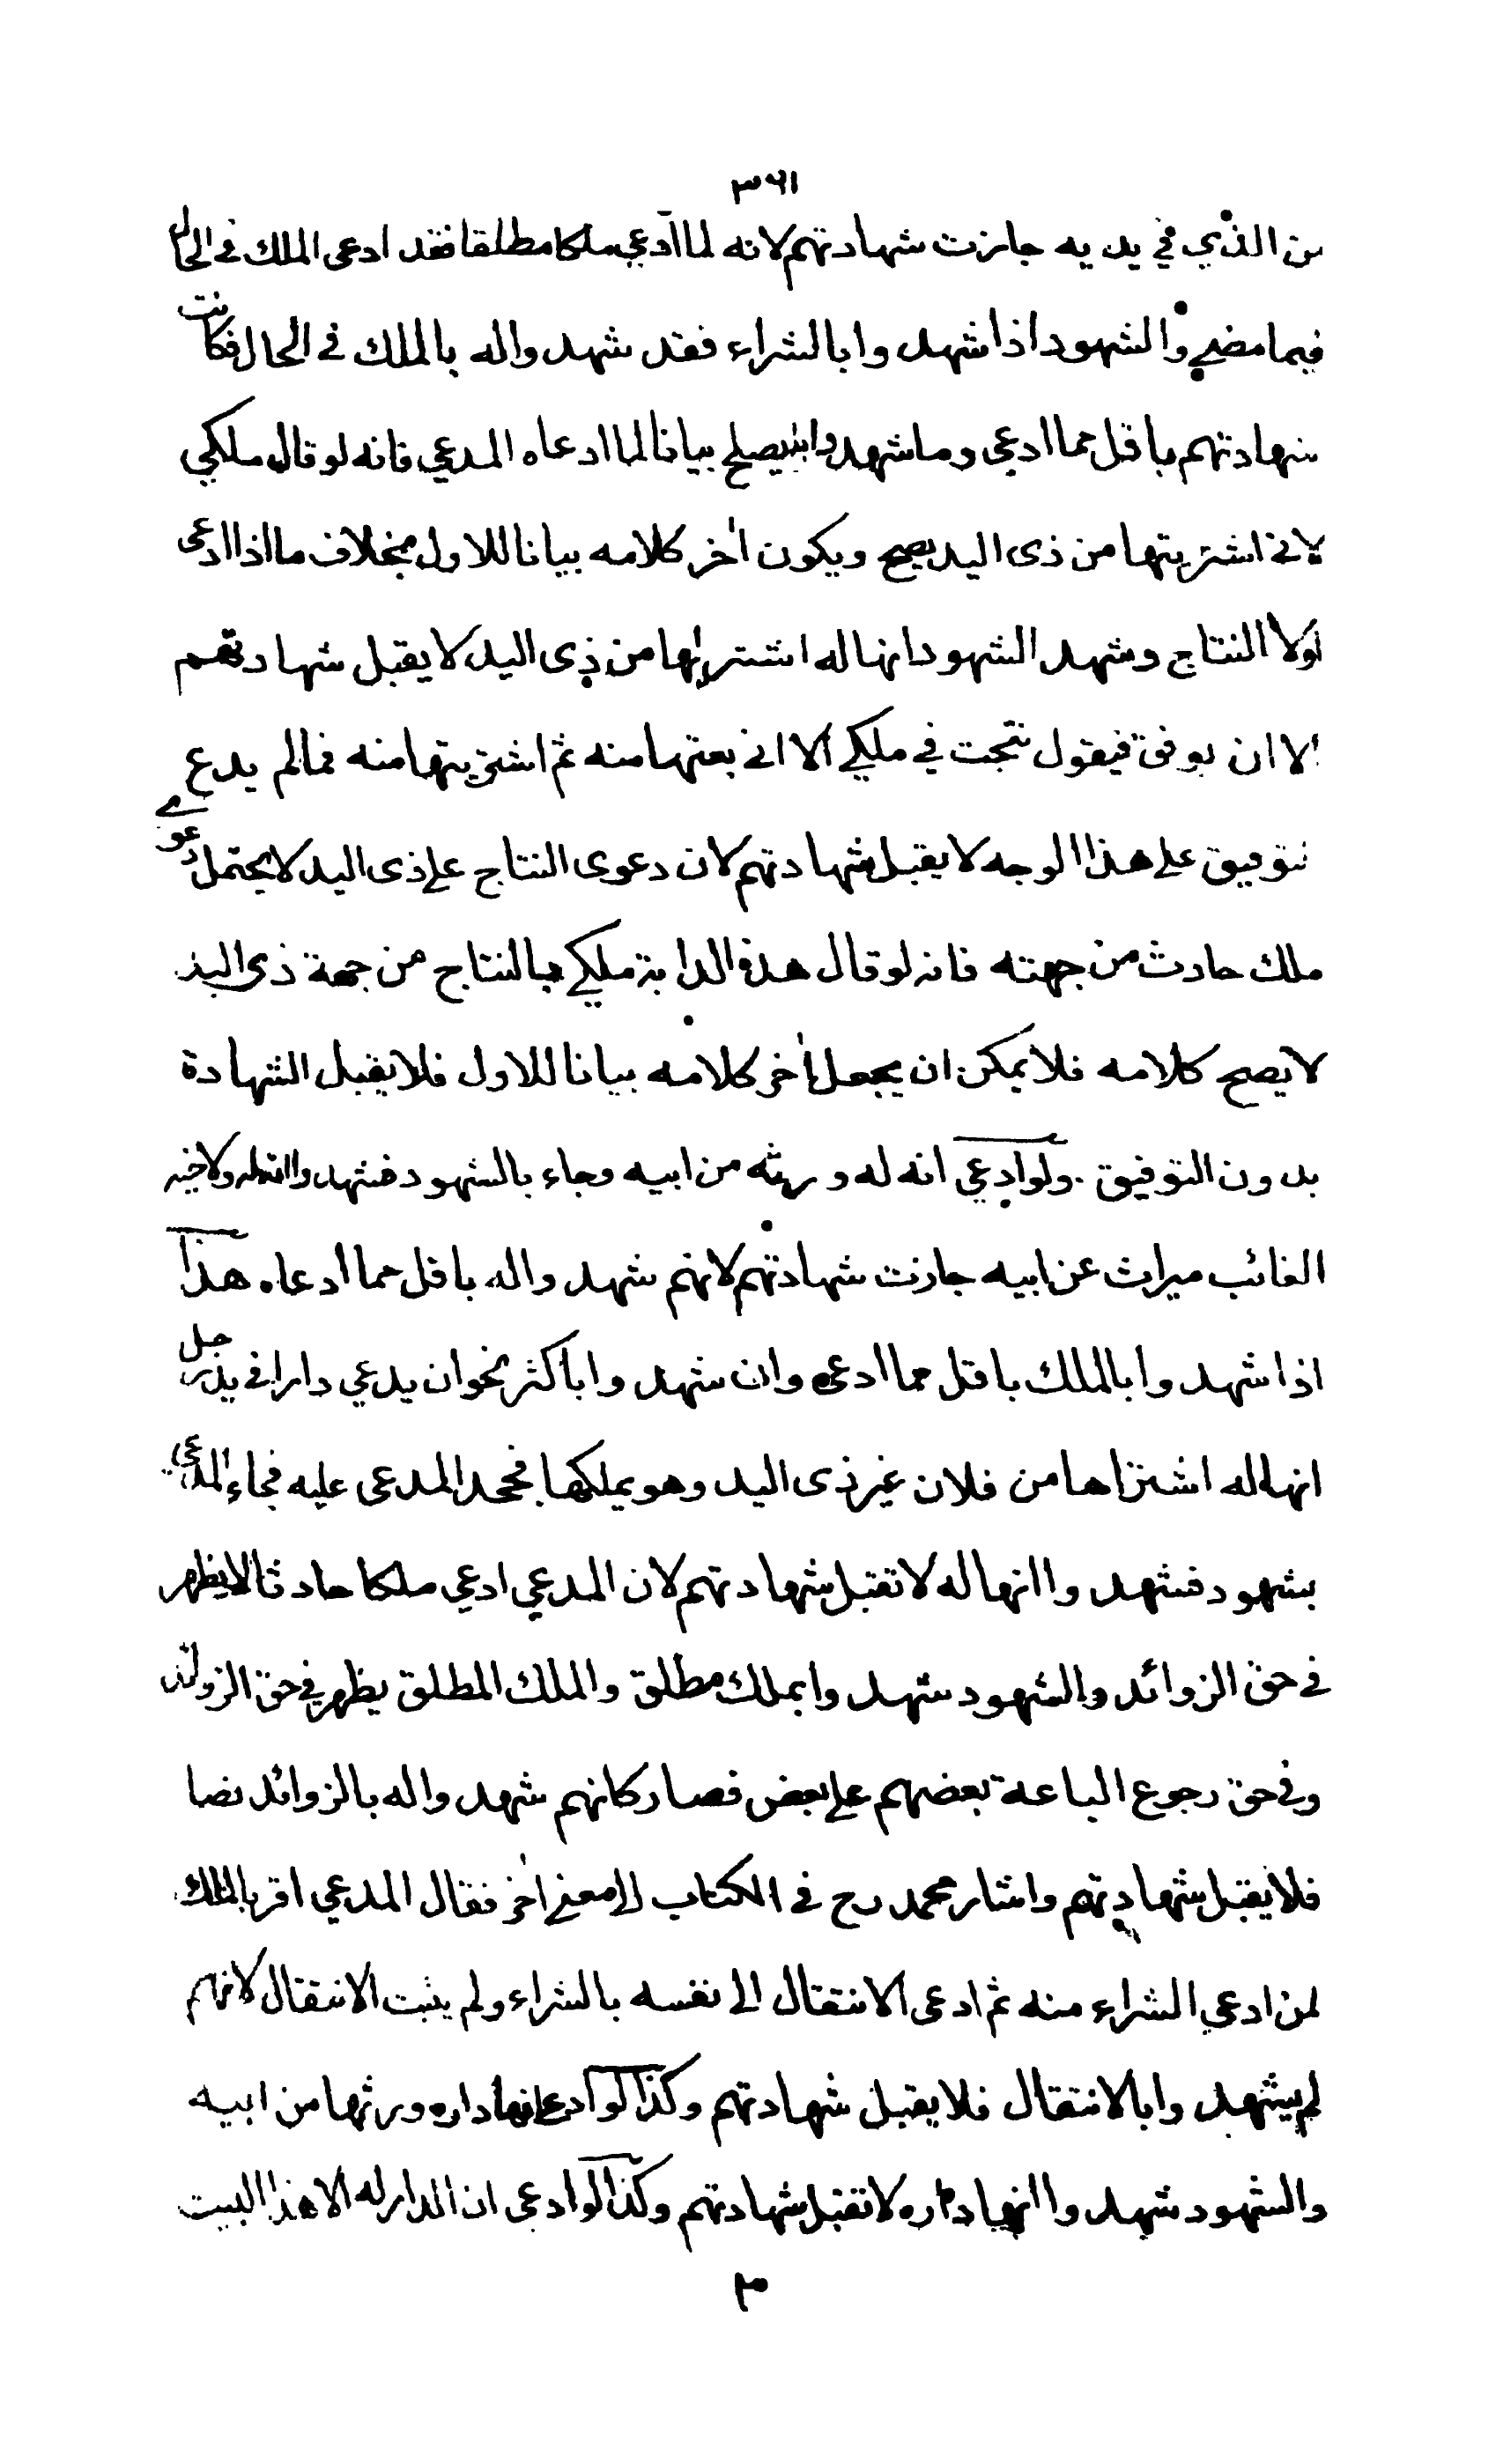 ٣٦١
من الذي في يديه جازت شهادتهم لانه لما ادعي ملكا مطلقا فقد ادعى الملك في الحال
فيما مضي والشهود اذا شهدوا بالشراء فقد شهدوا له بالملك في الحال فكانت
شهادتهم باقل مما ادعى وما شهدوا به يصلح بيانا لما ادعاه المدعي فانه لو قال ملكي
لاني اشتريتها من ذى اليد يصح ويكون اٰخر كلامه بيانا للاول بخلاف ما اذا ادعى
اولا النتاج وشهد الشهود انها له اشتراها من ذى اليد لا يقبل شهادتهم
الا ان يوفق فيقول نتجت في ملكي الا اني بعتها منه ثم اشتريتها منه فما لم يدع
التوفيق على هذا الوجه لا يقبل شهادتهم لان دعوى النتاج على ذى اليد لا يحتمل دعوے
ملك حادث من جهته فانه لو قال هذه الدابة ملكي بالنتاج من جهة ذى اليد
لا يصح كلامه فلا يمكن ان يجعل اٰخر كلامه بيانا للاول فلا يقبل الشهادة
بدون التوفيق ولو ادعي انه له ورثه من ابيه وجاء بالشهود فشهدوا انه له ولاخيه
الغائب ميراث عن ابيه جازت شهادتهم لانهم شهدوا له باقل مما ادعاه هذا
اذا شهدوا بالملك باقل مما ادعى وان شهدوا باكثر نحو ان يدعي دارا في يد رجل
انها له اشتراها من فلان غير ذى اليد وهو يملكها فجحد المدعى عليه فجاء المدعي
بشهود فشهدوا انها له لا تقبل شهادتهم لان المدعي ادعي ملكا حادثا لا يظهر
في حق الزوائد والشهود شهدوا بملك مطلق والملك المطلق يظهر في حق الزوائد
وفي حق رجوع الباعة بعضهم على بعض فصار كانهم شهدوا له بالزوائد نصا
فلا يقبل شهادتهم واشار محمد رح في الكتاب الى معنى اٰخر فقال المدعي اقر بالملك
لمن ادعي الشراء منه ثم ادعى الانتقال الى نفسه بالشراء ولم يثبت الانتقال لانهم
لم يشهدوا بالانتقال فلا يقبل شهادتهم وكذا لو ادعى انها داره ورثها من ابيه
والشهود شهدوا انها داره لا تقبل شهادتهم وكذا لو ادعى ان الدار له الا هذا البيت